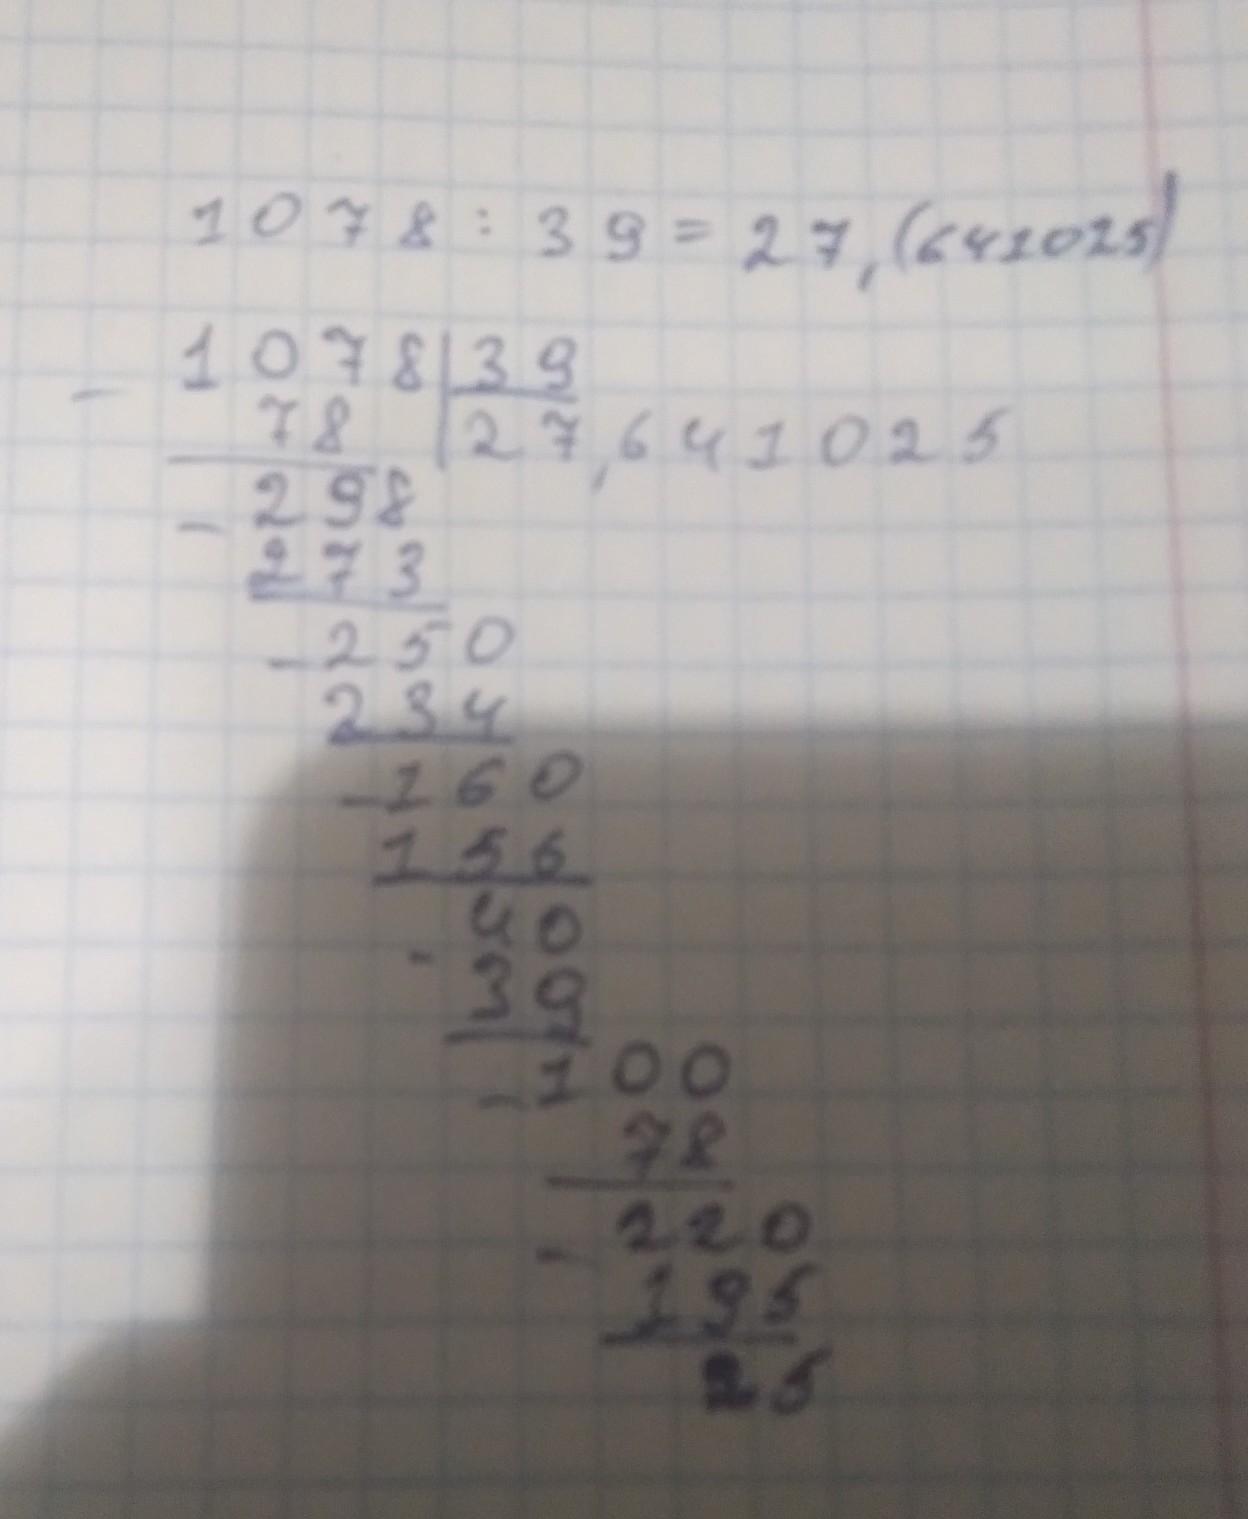 1078 : 39 = 27,(641025)
- 1078 | 39
78 | 27,641025
- 298
273
- 250
234
- 160
156
- 40
39
- 100
78
- 220
195
25